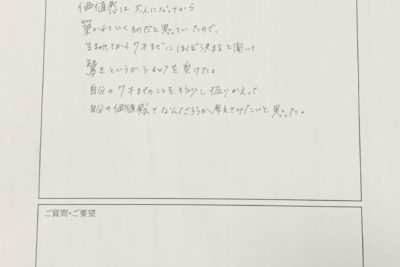 価値感は大人になってから
築かれていくものだと思っていたので、
生まれてから7才までにほぼ決まると聞いて
驚きというかショックを受けた。
自分の7才までのことをもう少し振りかえって
自分の価値感ってなんだろうか、考えてみたいと思った。
ご質問・ご要望